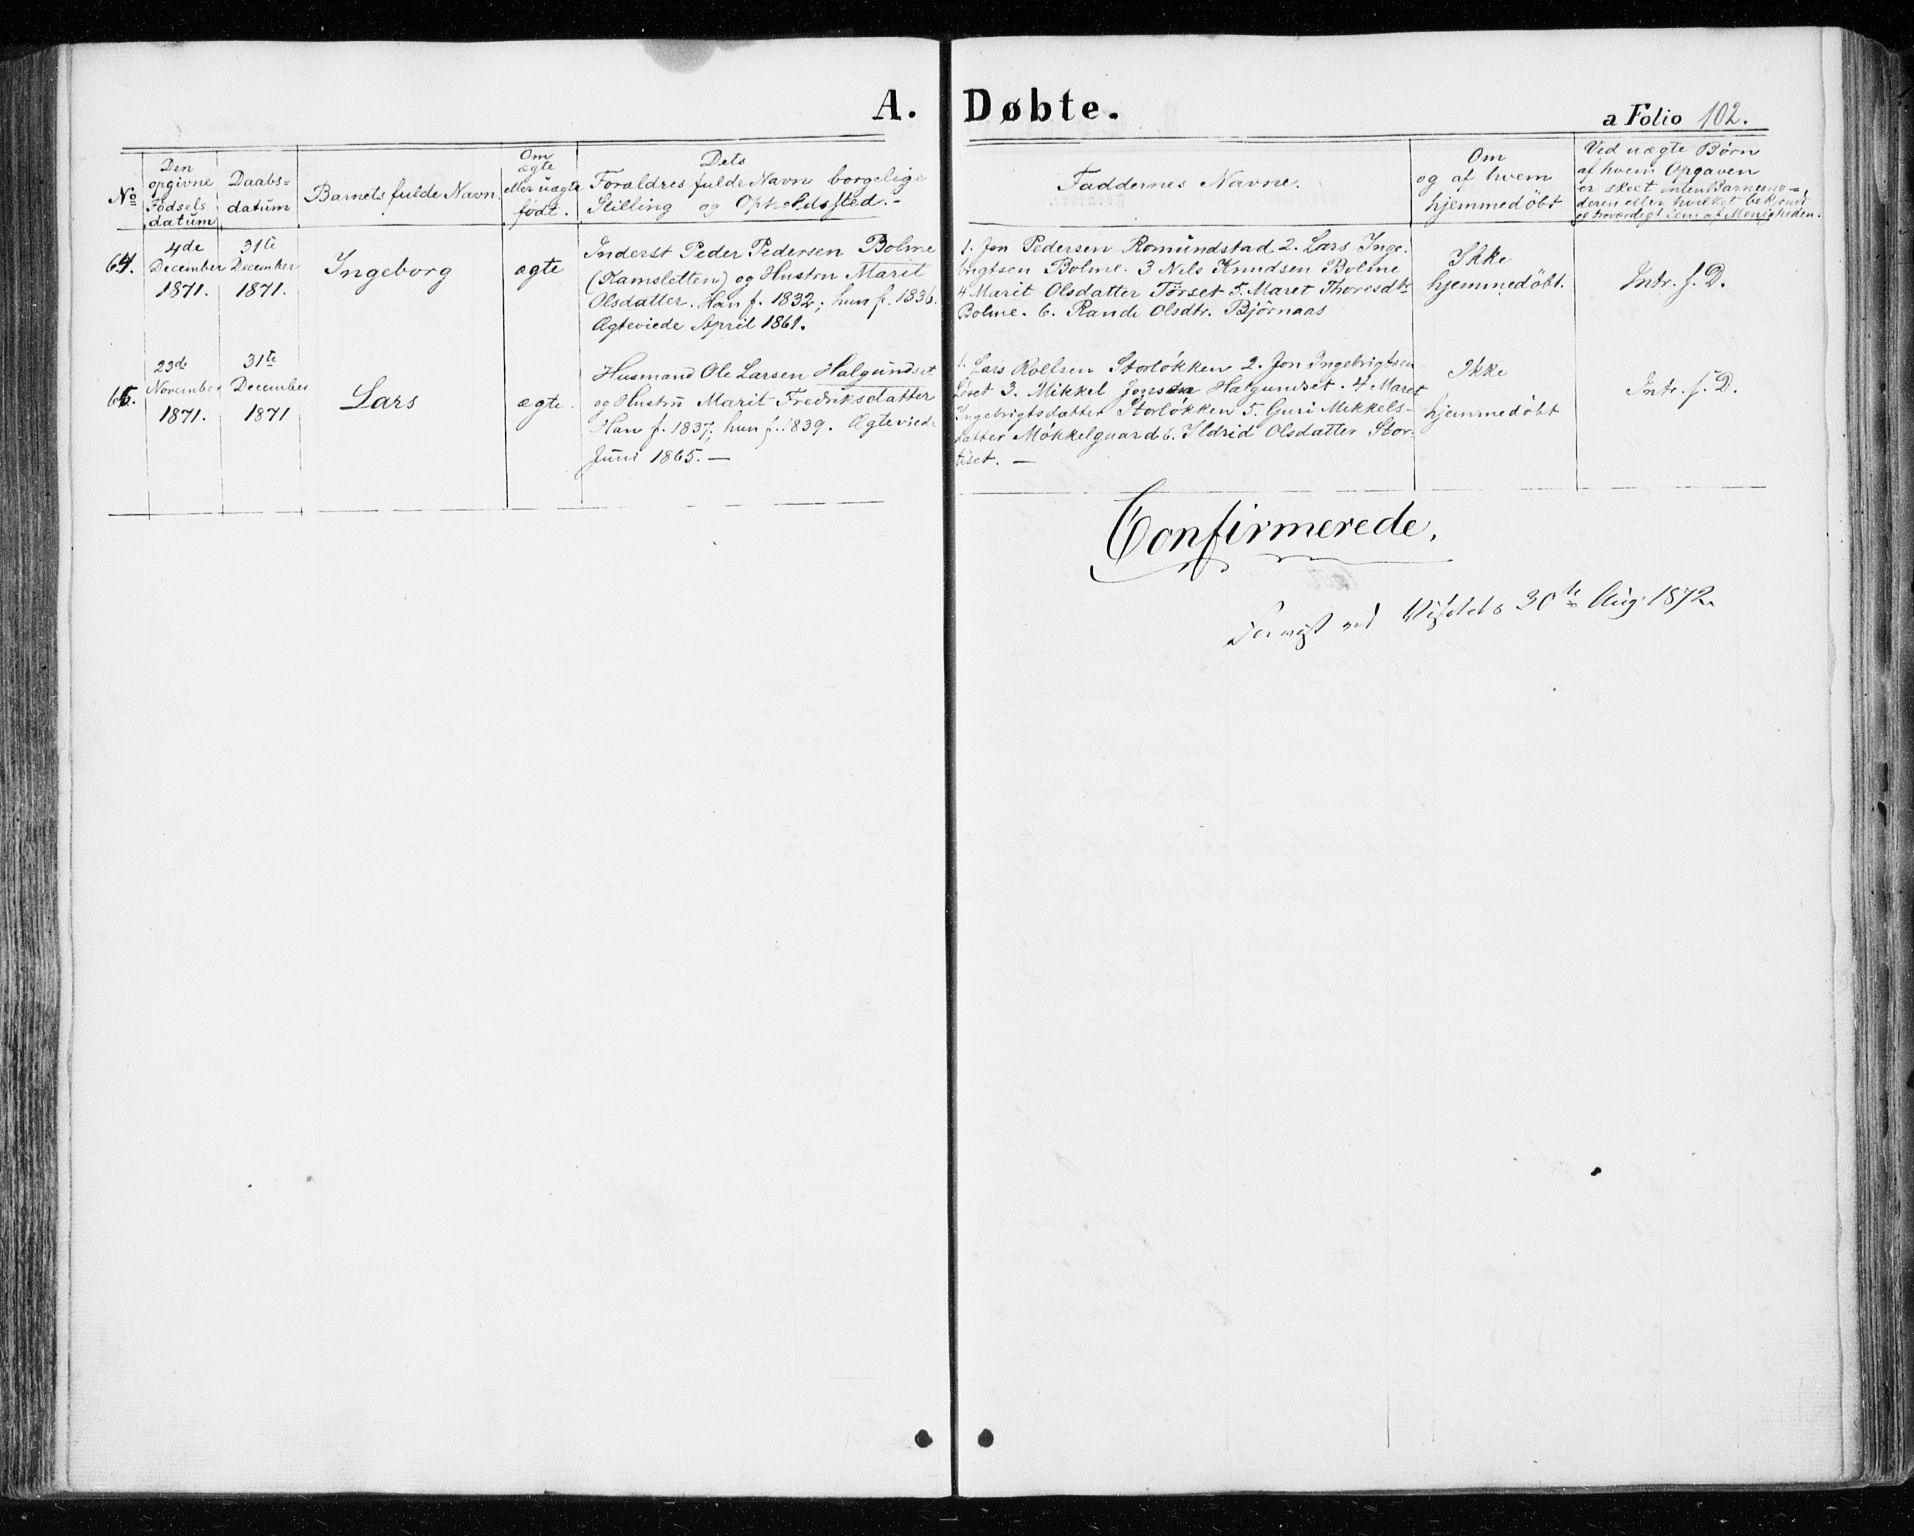 A. Døbte.
a Folio 102.
No
Den opgivne Fødsels datum
Daabs-datum
Barnets fulde Navn.
Om ægte eller uægte født.
Dets Forældres fulde Navn borgelige Stilling og Opholdssted.-
Faddernes Navne.
Om og af hvem hjemmedøbt
Ved uægte Børn af hvem Opgaven er skeet enten Barnemo-deren eller hvilket bekjendt og troværdigt Lem af Menigheden.
64.
4de December 1871.
31te December 1871.
Ingeborg
ægte
Inderst Peder Pedersen Bolme
(Kamsletten) og Hustru Marit
Olsdatter. Han f. 1832; hun f. 1836.
Ægteviede April 1861.
1. Jon Pedersen Romundstad 2. Lars Inge-
brigtsen Bolme. 3 Nils Knudsen Bolme
4 Marit Olsdatter Törset 5. Maret Thoresdtr
Bolme. 6. Rande Olsdtr. Björnaas
Ikke
hjemmedøbt.
Intr. s. D.
65.
23de November 1871.
31te December 1871
Lars
ægte.
Husmand Ole Larsen Halgundset
og Hustru Marit Fredriksdatter
Han f. 1837; hun f. 1839. Ægteviede
Juni 1865. —
1. Lars Rolfsen Storløkken 2. Jon Ingebrigtsen
3. Mikkel Halgundset. 4 Maret
Ingebrigtsdatter Storløkken 5. Guri Mikkels-
datter Møkkelgaard 6. Ildrid Olsdatter
Ikke
hjemmedøbt
Intr. s. D.
Confirmerede.
ved 30te Aug. 1872.